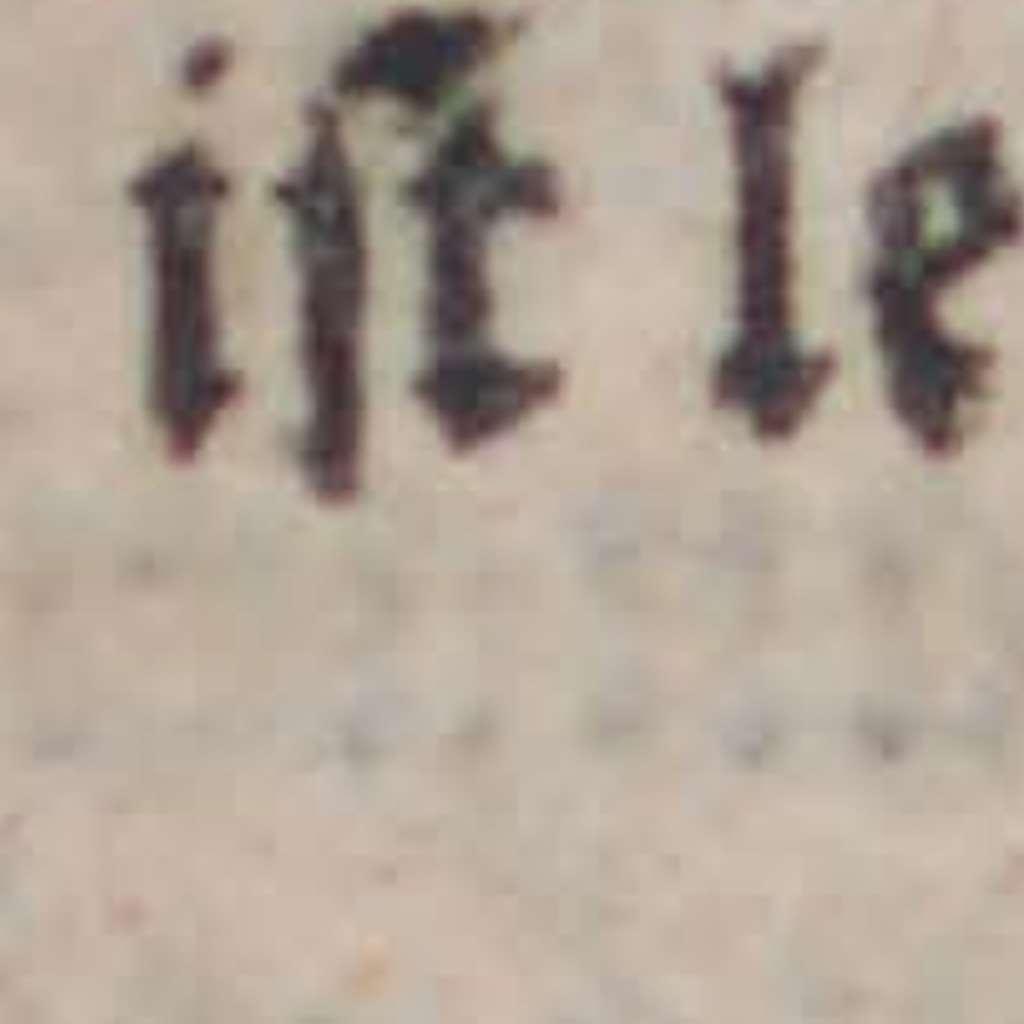 iſt le